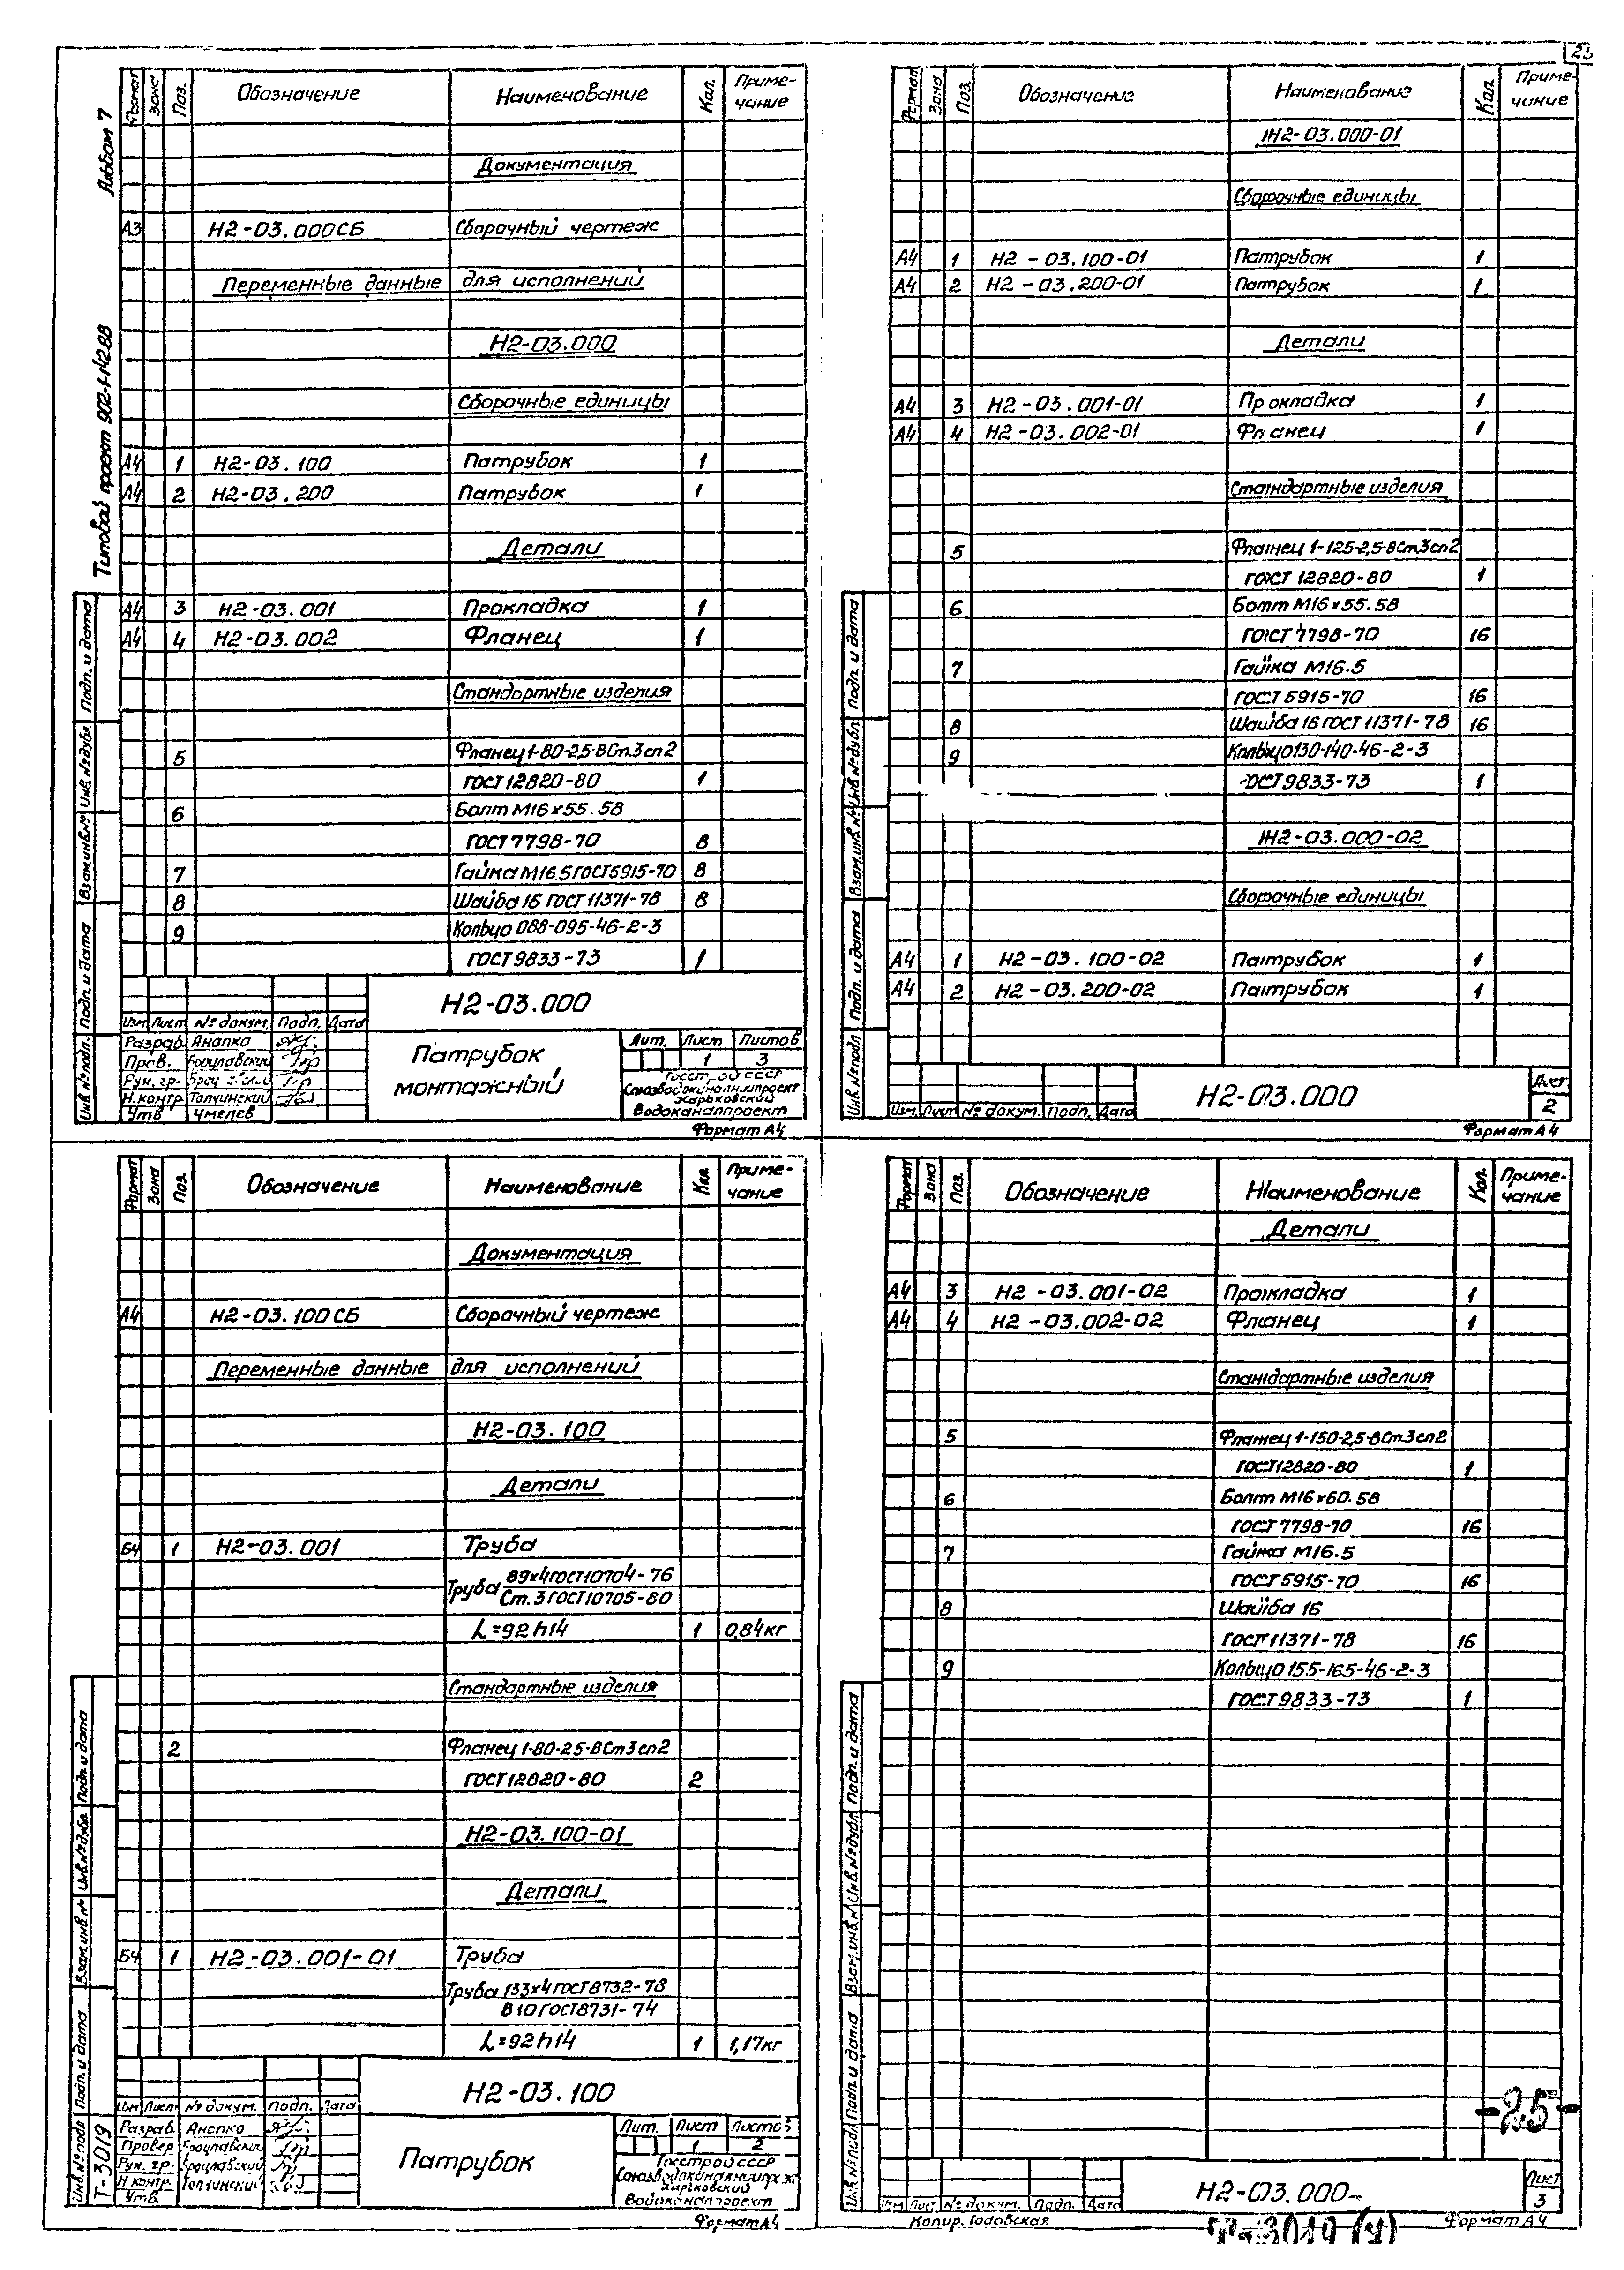 25
Альбом 7
Типовой проект 902-1-142.88
Формат Зона Поз. Обозначение Наименование Кол. Приме-
чание
Документация
А3 Н2-03.000СБ Сборочный чертеж
Переменные данные для исполнений
Н2-03.000
Сборочные единицы
А4 1 Н2-03.100 Патрубок 1
А4 2 Н2-03.200 Патрубок 1
Детали
А4 3 Н2-03.001 Прокладка 1
А4 4 Н2-03.002 Фланец 1
Стандартные изделия
5 Фланец 1-80-2,5-ВСт.3сп2
ГОСТ 12820-80 1
6 Болт М16х55.58
ГОСТ 7798-70 8
7 Гайка М16.5 ГОСТ 5915-70 8
8 Шайба 16 ГОСТ 11371-78 8
9 Кольцо 088-095-46-2-3
ГОСТ 9833-73 1
Инв. № подл. Подп. и дата Взам.инв.№ Инв. № дубл. Подп. и дата
Н2-03.000
Изм Лист № докум. Подп. Дата
Разраб. Анопко
Пров. Брацлавский
Рук. гр.
Н.контр. Толчинский
Утв Чмелев
Патрубок
монтажный
Лит. Лист Листов
1 3
Госстрой СССР
Союзводоканалниипроект
Харьковский
Водоканалпроект
Формат А4
Формат Зона Поз. Обозначение Наименование Кол. Приме-
чание
Н2-03.000-01
Сборочные единицы
А4 1 Н2-03.100-01 Патрубок 1
А4 2 Н2-03.200-01 Патрубок 1
Детали
А4 3 Н2-03.001-01 Прокладка 1
А4 4 Н2-03.002-01 Фланец 1
Стандартные изделия
5 Фланец 1-125-2,5-ВСт.3сп2
ГОСТ 12820-80 1
6 Болт М16х55.58
ГОСТ 7798-70 16
7 Гайка М16.5
ГОСТ 5915-70 16
8 Шайба 16 ГОСТ 11371-78 16
9 Кольцо 130-140-46-2-3
ГОСТ 9833-73 1
Н2-03.000-02
Сборочные единицы
А4 1 Н2-03.100-02 Патрубок 1
А4 2 Н2-03.200-02 Патрубок 1
Инв. № подл Подп. и дата Взам.инв.№ Инв. № дубл. Подп. и дата
Изм. Лист № докум. Подп. Дата
Н2-03.000
Лист
2
Формат А4
Формат Зона Поз. Обозначение Наименование Кол. Приме-
чание
Документация
А4 Н2-03.100СБ Сборочный чертеж
Переменные данные для исполнений
Н2-03.100
Детали
Б4 1 Н2-03.001 Труба
Труба 89х4 ГОСТ 10704-76
Ст.3 ГОСТ 10705-80
L=92h14 1 0,84кг
Стандартные изделия
2 Фланец 1-80-2,5-ВСт3сп2
ГОСТ 12820-80 2
Н2-03.100-01
Детали
Б4 1 Н2-03.001-01 Труба
Труба 133х4 ГОСТ 8732-78
В10 ГОСТ 8731-74
L=92h14 1 1,17кг
Инв. № подл Подп. и дата Взам.инв.№ Инв. № дубл. Подп. и дата
Т-3019
Н2-03.100
Изм Лист № докум. Подп. Дата
Разраб. Анопко
Провер Брацлавский
Рук. гр. Брацлавский
Н.контр. Толчинский
Утв
Патрубок
Лит. Лист Листов
1 2
Госстрой СССР
Союзводоканалниипроект
Харьковский
Водоканалпроект
Формат А4
Формат Зона Поз. Обозначение Наименование Кол. Приме-
чание
Детали
А4 3 Н2-03.001-02 Прокладка 1
А4 4 Н2-03.002-02 Фланец 1
Стандартные изделия
5 Фланец 1-150-2,5-ВСт3сп2
ГОСТ 12820-80 1
6 Болт М16х60.58
ГОСТ 7798-70 16
7 Гайка М16.5
ГОСТ 5915-70 16
8 Шайба 16
ГОСТ 11371-78 16
9 Кольцо 155-165-46-2-3
ГОСТ 9833-73 1
-25-
Инв. № подл Подп. и дата Взам.инв.№ Инв. № дубл. Подп. и дата
Изм Лист № докум. Подп. Дата
Н2-03.000
Лист
3
Копир. Годовская
Формат А4
Т-3019